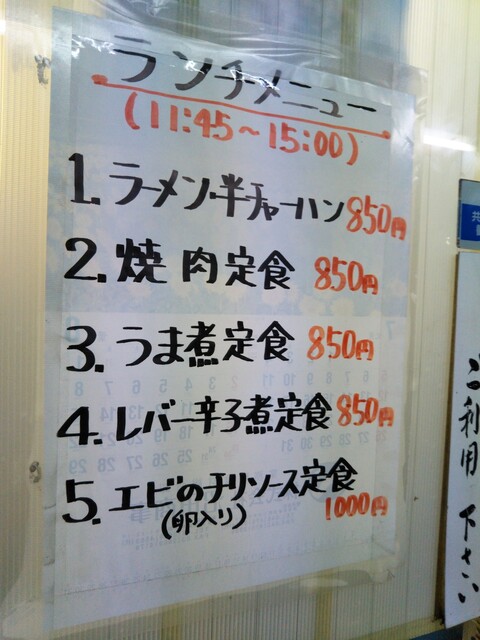 ランチメニュー
(11:45～15:00)
1. ラーメン・半チャーハン 850円
2. 焼肉定食 850円
3. うま煮定食 850円
4. レバー辛子煮定食 850円
5. エビのチリソース定食
(卵入り) 1000円
ご利用下さい